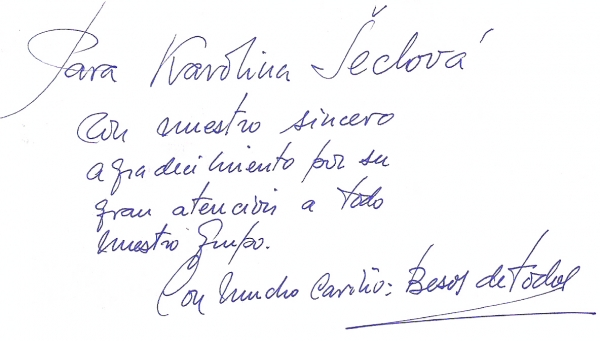 Para Karolina Šeclová
Con nuestro sincero
agradecimiento por su
gran atención a todo
nuestro Grupo.
Con mucho Cariño: Besos de todos